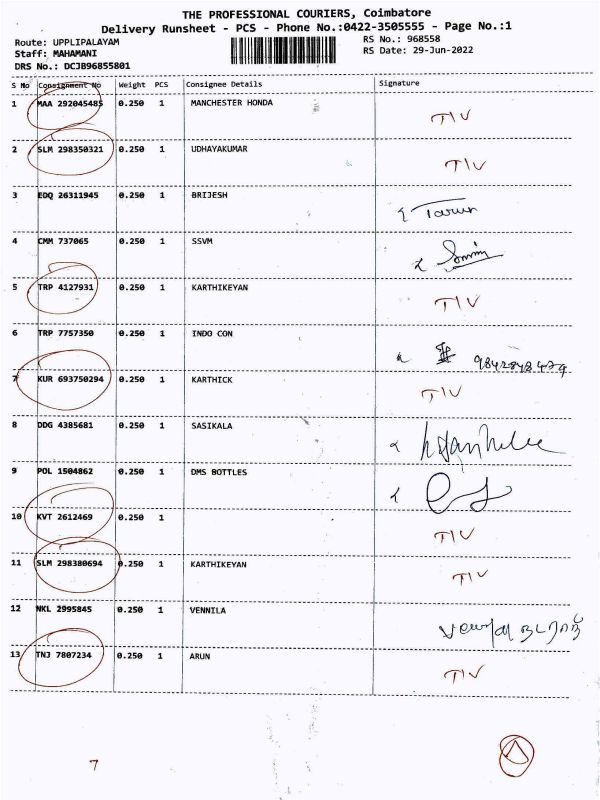 THE PROFESSIONAL COURIERS, Coimbatore
Delivery Runsheet - PCS - Phone No.:0422-3505555 - Page No.:1
Route: UPPLIPALAYAM RS No.: 968558
Staff: MAHAMANI RS Date: 29-Jun-2022
DRS No.: DCJB96855801
S No Consignment No Weight PCS Consignee Details Signature
1 MAA 292045485 0.250 1 MANCHESTER HONDA
TIV
2 SLM 298350321 0.250 1 UDHAYAKUMAR
TIV
3 EDQ 26311945 0.250 1 BRIJESH
Tarun
4 CMM 737065 0.250 1 SSVM
5 TRP 4127931 0.250 1 KARTHIKEYAN
TIV
6 TRP 7757350 0.250 1 INDO CON
7 KUR 693750294 0.250 1 KARTHICK
TIV
8 DDG 4385681 0.250 1 SASIKALA
9 POL 1504862 0.250 1 DMS BOTTLES
10 KVT 2612469 0.250 1
TIV
11 SLM 298380694 0.250 1 KARTHIKEYAN
TIV
12 NKL 2995845 0.250 1 VENNILA
13 TNJ 7807234 0.250 1 ARUN
TIV
7